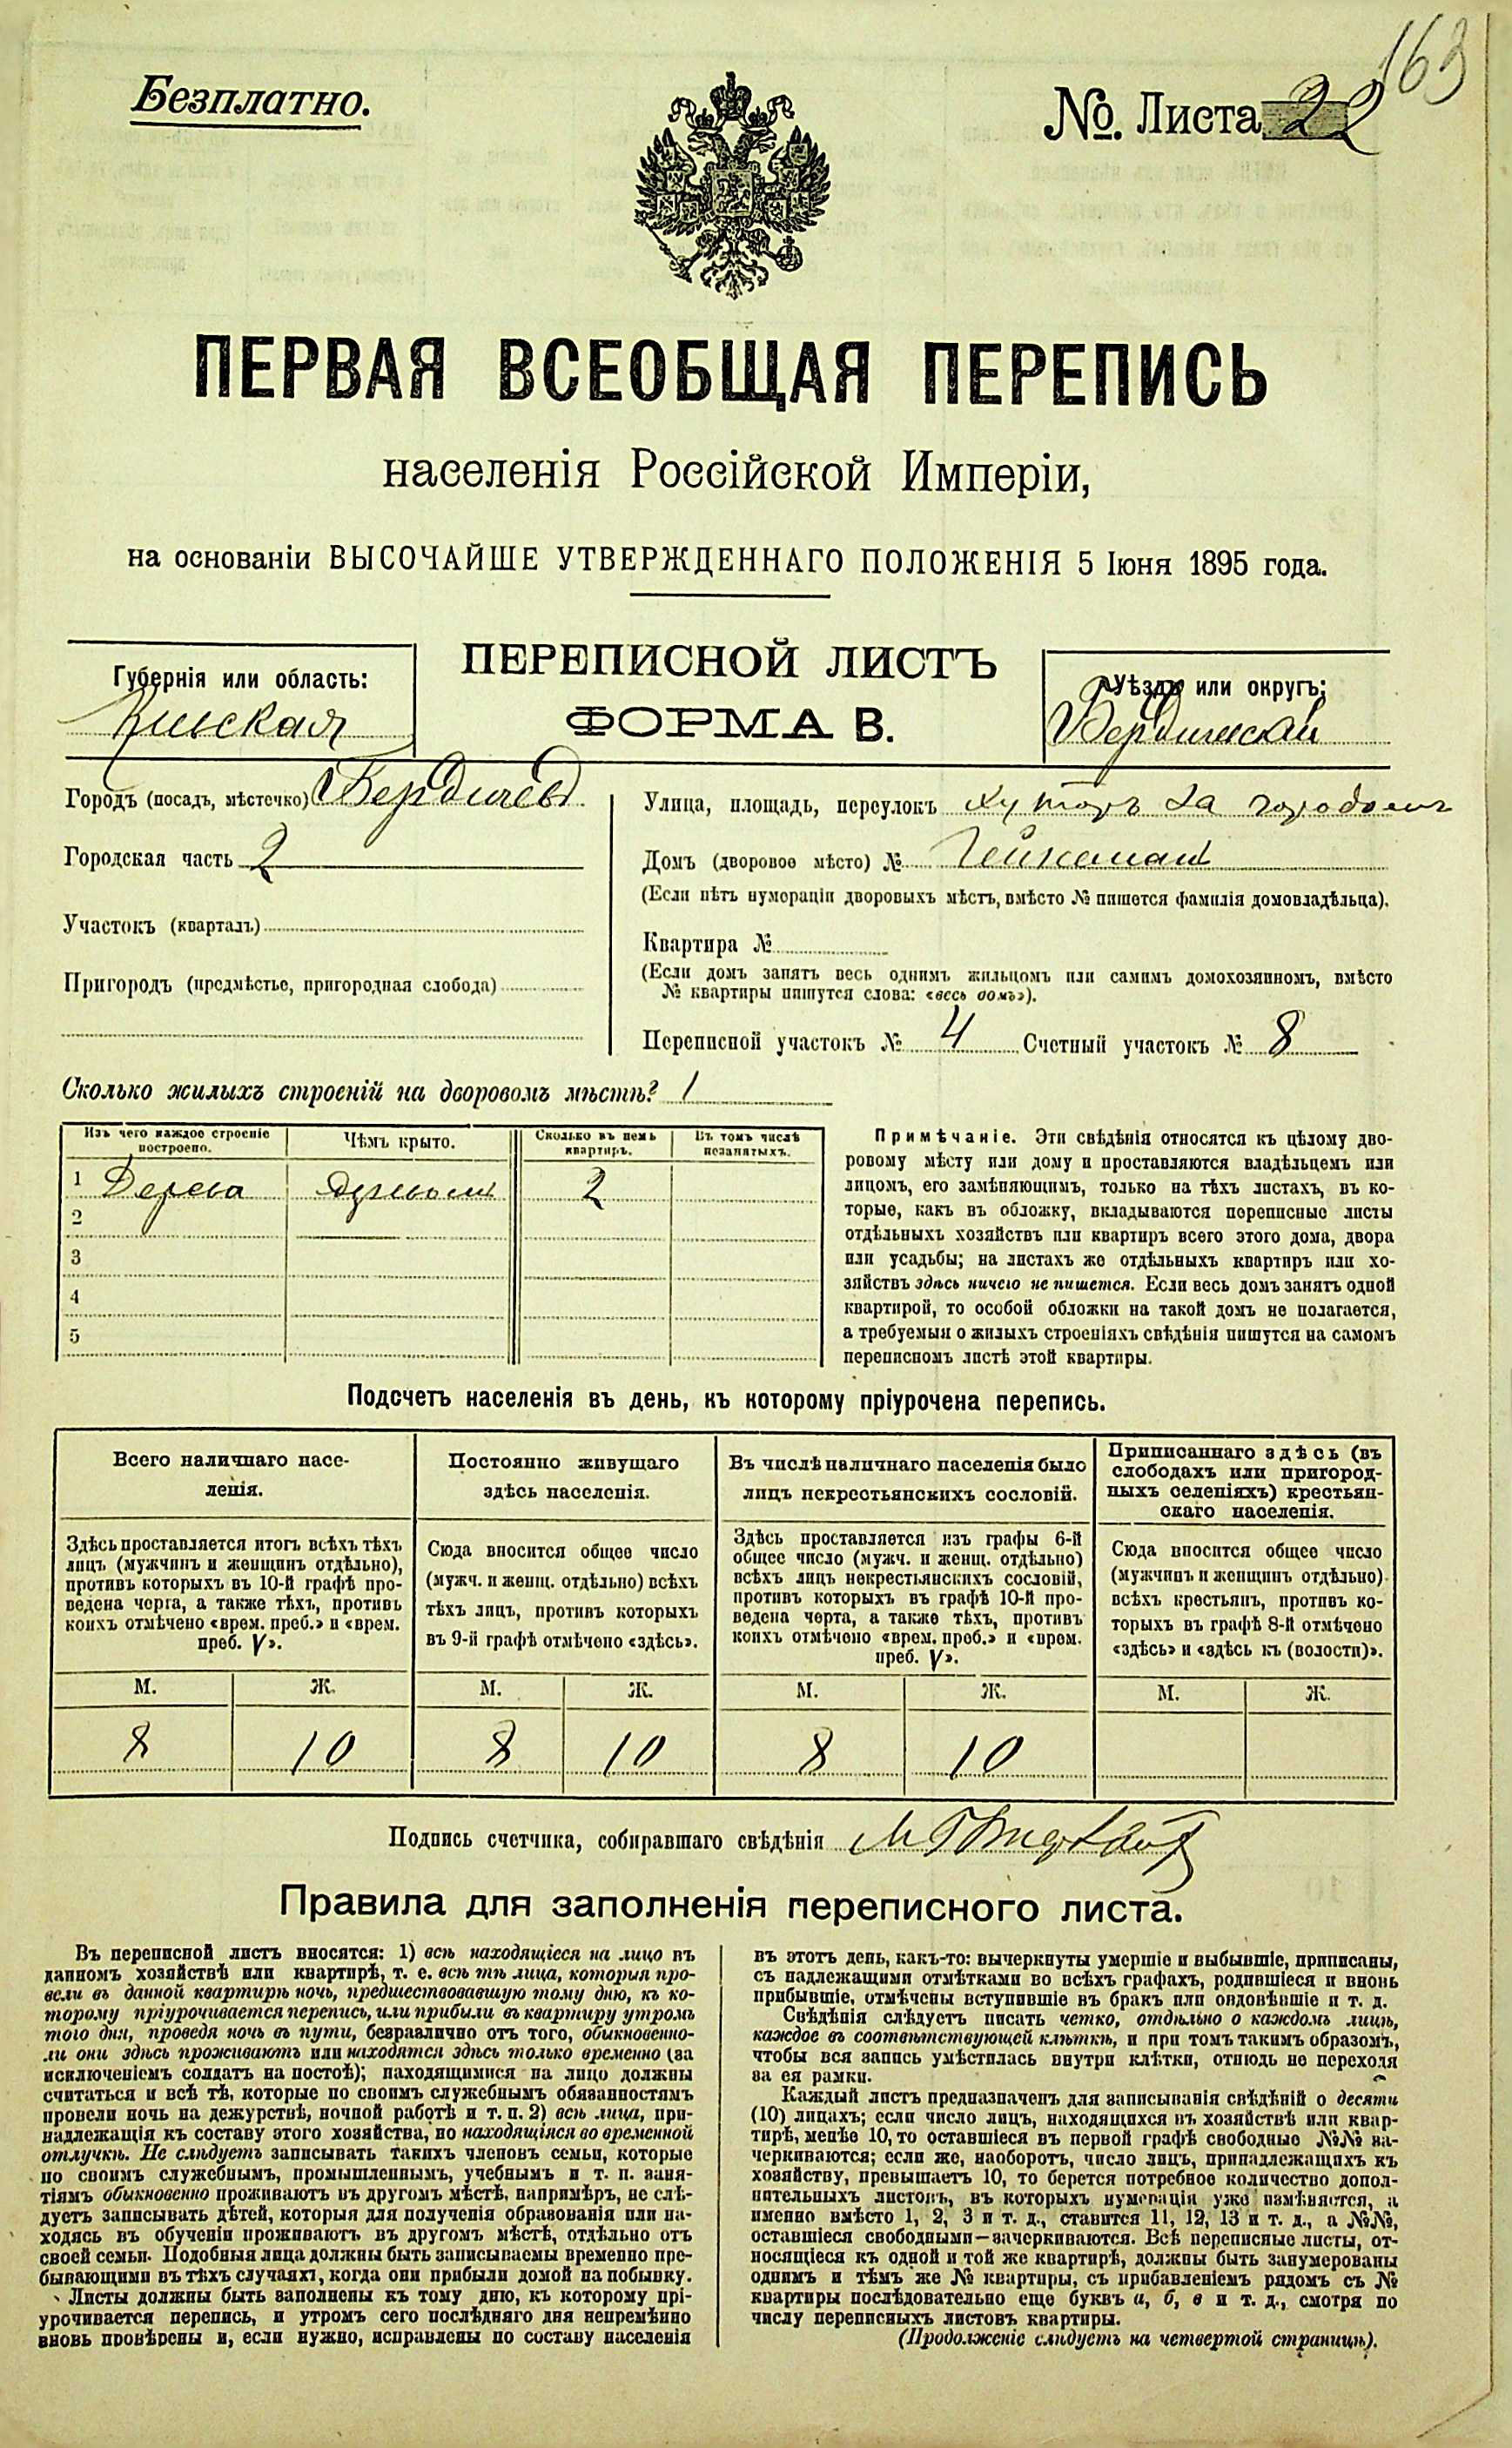 163
Безплатно.
№. Листа 22
ПЕРВАЯ ВСЕОБЩАЯ ПЕРЕПИСЬ
населенія Россійской Имперіи,
на основаніи ВЫСОЧАЙШЕ УТВЕРЖДЕННАГО ПОЛОЖЕНІЯ 5 Іюня 1895 года.
ПЕРЕПИСНОЙ ЛИСТЪ
ФОРМА В.
Губернія или область:
Кіевская
Уѣздъ или округъ:
Бердичевскій
Городъ (посадъ, мѣстечко) Бердичевъ
Городская часть 2
Участокъ (кварталъ)
Пригородъ (предмѣстье, пригородная слобода)
Улица, площадь, переулокъ хуторъ за городомъ
Домъ (дворовое мѣсто) №
(Если нѣтъ нумераціи дворовыхъ мѣстъ, вмѣсто № пишется фамилія домовладѣльца).
Квартира №
(Если домъ занятъ весь однимъ жильцомъ или самимъ домохозяиномъ, вмѣсто
№ квартиры пишутся слова: «весь домъ»).
Переписной участокъ № 4 Счетный участокъ № 8
Сколько жилыхъ строеній на дворовомъ мѣстѣ? 1
Изъ чего каждое строеніе
построено.
Чѣмъ крыто.
Сколько въ немъ
квартиръ.
Въ томъ числѣ
незанятыхъ.
1 Дерева 2
2
3
4
5
Примѣчаніе. Эти свѣдѣнія относятся къ цѣлому дво-
ровому мѣсту или дому и проставляются владѣльцемъ или
лицомъ, его замѣняющимъ, только на тѣхъ листахъ, въ ко-
торые, какъ въ обложку, вкладываются переписные листы
отдѣльныхъ хозяйствъ или квартиръ всего этого дома, двора
или усадьбы; на листахъ же отдѣльныхъ квартиръ или хо-
зяйствъ здѣсь ничего не пишется. Если весь домъ занятъ одной
квартирой, то особой обложки на такой домъ не полагается,
а требуемыя о жилыхъ строеніяхъ свѣдѣнія пишутся на самомъ
переписномъ листѣ этой квартиры.
Подсчетъ населенія въ день, къ которому пріурочена перепись.
Всего наличнаго насе-
ленія.
Здѣсь проставляется итогъ всѣхъ тѣхъ
лицъ (мужчинъ и женщинъ отдѣльно),
противъ которыхъ въ 10-й графѣ про-
ведена черта, а также тѣхъ, противъ
коихъ отмѣчено «врем. преб.» и «врем.
преб. V».
Постоянно живущаго
здѣсь населенія.
Сюда вносится общее число
(мужч. и женщ. отдѣльно) всѣхъ
тѣхъ лицъ, противъ которыхъ
въ 9-й графѣ отмѣчено «здѣсь».
Въ числѣ наличнаго населенія было
лицъ некрестьянскихъ сословій.
Здѣсь проставляется изъ графы 6-й
общее число (мужч. и женщ. отдѣльно)
всѣхъ лицъ некрестьянскихъ сословій,
противъ которыхъ въ графѣ 10-й про-
ведена черта, а также тѣхъ, противъ
коихъ отмѣчено «врем. преб.» и «врем.
преб. V».
Приписаннаго здѣсь (въ
слободахъ или пригород-
ныхъ селеніяхъ) крестьян-
скаго населенія.
Сюда вносится общее число
(мужчинъ и женщинъ отдѣльно)
всѣхъ крестьянъ, противъ ко-
торыхъ въ графѣ 8-й отмѣчено
«здѣсь» и «здѣсь къ (волости)».
М. Ж. М. Ж. М. Ж. М. Ж.
8 10 8 10 8 10
Подпись счетчика, собиравшаго свѣдѣнія
Правила для заполненія переписного листа.
Въ переписной листъ вносятся: 1) всѣ находящіеся на лицо въ
данномъ хозяйствѣ или квартирѣ, т. е. всѣ тѣ лица, которыя про-
вели въ данной квартирѣ ночь, предшествовавшую тому дню, къ ко-
торому пріурочивается перепись, или прибыли въ квартиру утромъ
того дня, проведя ночь въ пути, безразлично отъ того, обыкновенно-
ли они здѣсь проживаютъ или находятся здѣсь только временно (за
исключеніемъ солдатъ на постоѣ); находящимися на лицо должны
считаться и всѣ тѣ, которые по своимъ служебнымъ обязанностямъ
провели ночь на дежурствѣ, ночной работѣ и т. п. 2) всѣ лица, при-
надлежащія къ составу этого хозяйства, но находящіяся во временной
отлучкѣ. Не слѣдуетъ записывать такихъ членовъ семьи, которые
по своимъ служебнымъ, промышленнымъ, учебнымъ и т. п. заня-
тіямъ обыкновенно проживаютъ въ другомъ мѣстѣ, напримѣръ, не слѣ-
дуетъ записывать дѣтей, которыя для полученія образованія или на-
ходясь въ обученіи проживаютъ въ другомъ мѣстѣ, отдѣльно отъ
своей семьи. Подобныя лица должны быть записываемы временно пре-
бывающими въ тѣхъ случаяхъ, когда они прибыли домой на побывку.
Листы должны быть заполнены къ тому дню, къ которому прі-
урочивается перепись, и утромъ сего послѣдняго дня непремѣнно
вновь провѣрены и, если нужно, исправлены по составу населенія
въ этотъ день, какъ-то: вычеркнуты умершіе и выбывшіе, приписаны,
съ надлежащими отмѣтками во всѣхъ графахъ, родившіеся и вновь
прибывшіе, отмѣчены вступившіе въ бракъ или овдовѣвшіе и т. д.
Свѣдѣнія слѣдуетъ писать четко, отдѣльно о каждомъ лицѣ,
каждое въ соотвѣтствующей клѣткѣ, и при томъ такимъ образомъ,
чтобы вся запись умѣстилась внутри клѣтки, отнюдь не переходя
за ея рамки.
Каждый листъ предназначенъ для записыванія свѣдѣній о десяти
(10) лицахъ; если число лицъ, находящихся въ хозяйствѣ или квар-
тирѣ, менѣе 10, то оставшіеся въ первой графѣ свободные №№ за-
черкиваются; если же, наоборотъ, число лицъ, принадлежащихъ къ
хозяйству, превышаетъ 10, то берется потребное количество допол-
нительныхъ листовъ, въ которыхъ нумерація уже измѣняется, а
именно вмѣсто 1, 2, 3 и т. д., ставится 11, 12, 13 и т. д., а №№,
оставшіеся свободными—зачеркиваются. Всѣ переписные листы, от-
носящіеся къ одной и той же квартирѣ, должны быть занумерованы
однимъ и тѣмъ же № квартиры, съ прибавленіемъ рядомъ съ №
квартиры послѣдовательно еще буквъ а, б, в и т. д., смотря по
числу переписныхъ листовъ квартиры.
(Продолженіе слѣдуетъ на четвертой страницѣ).